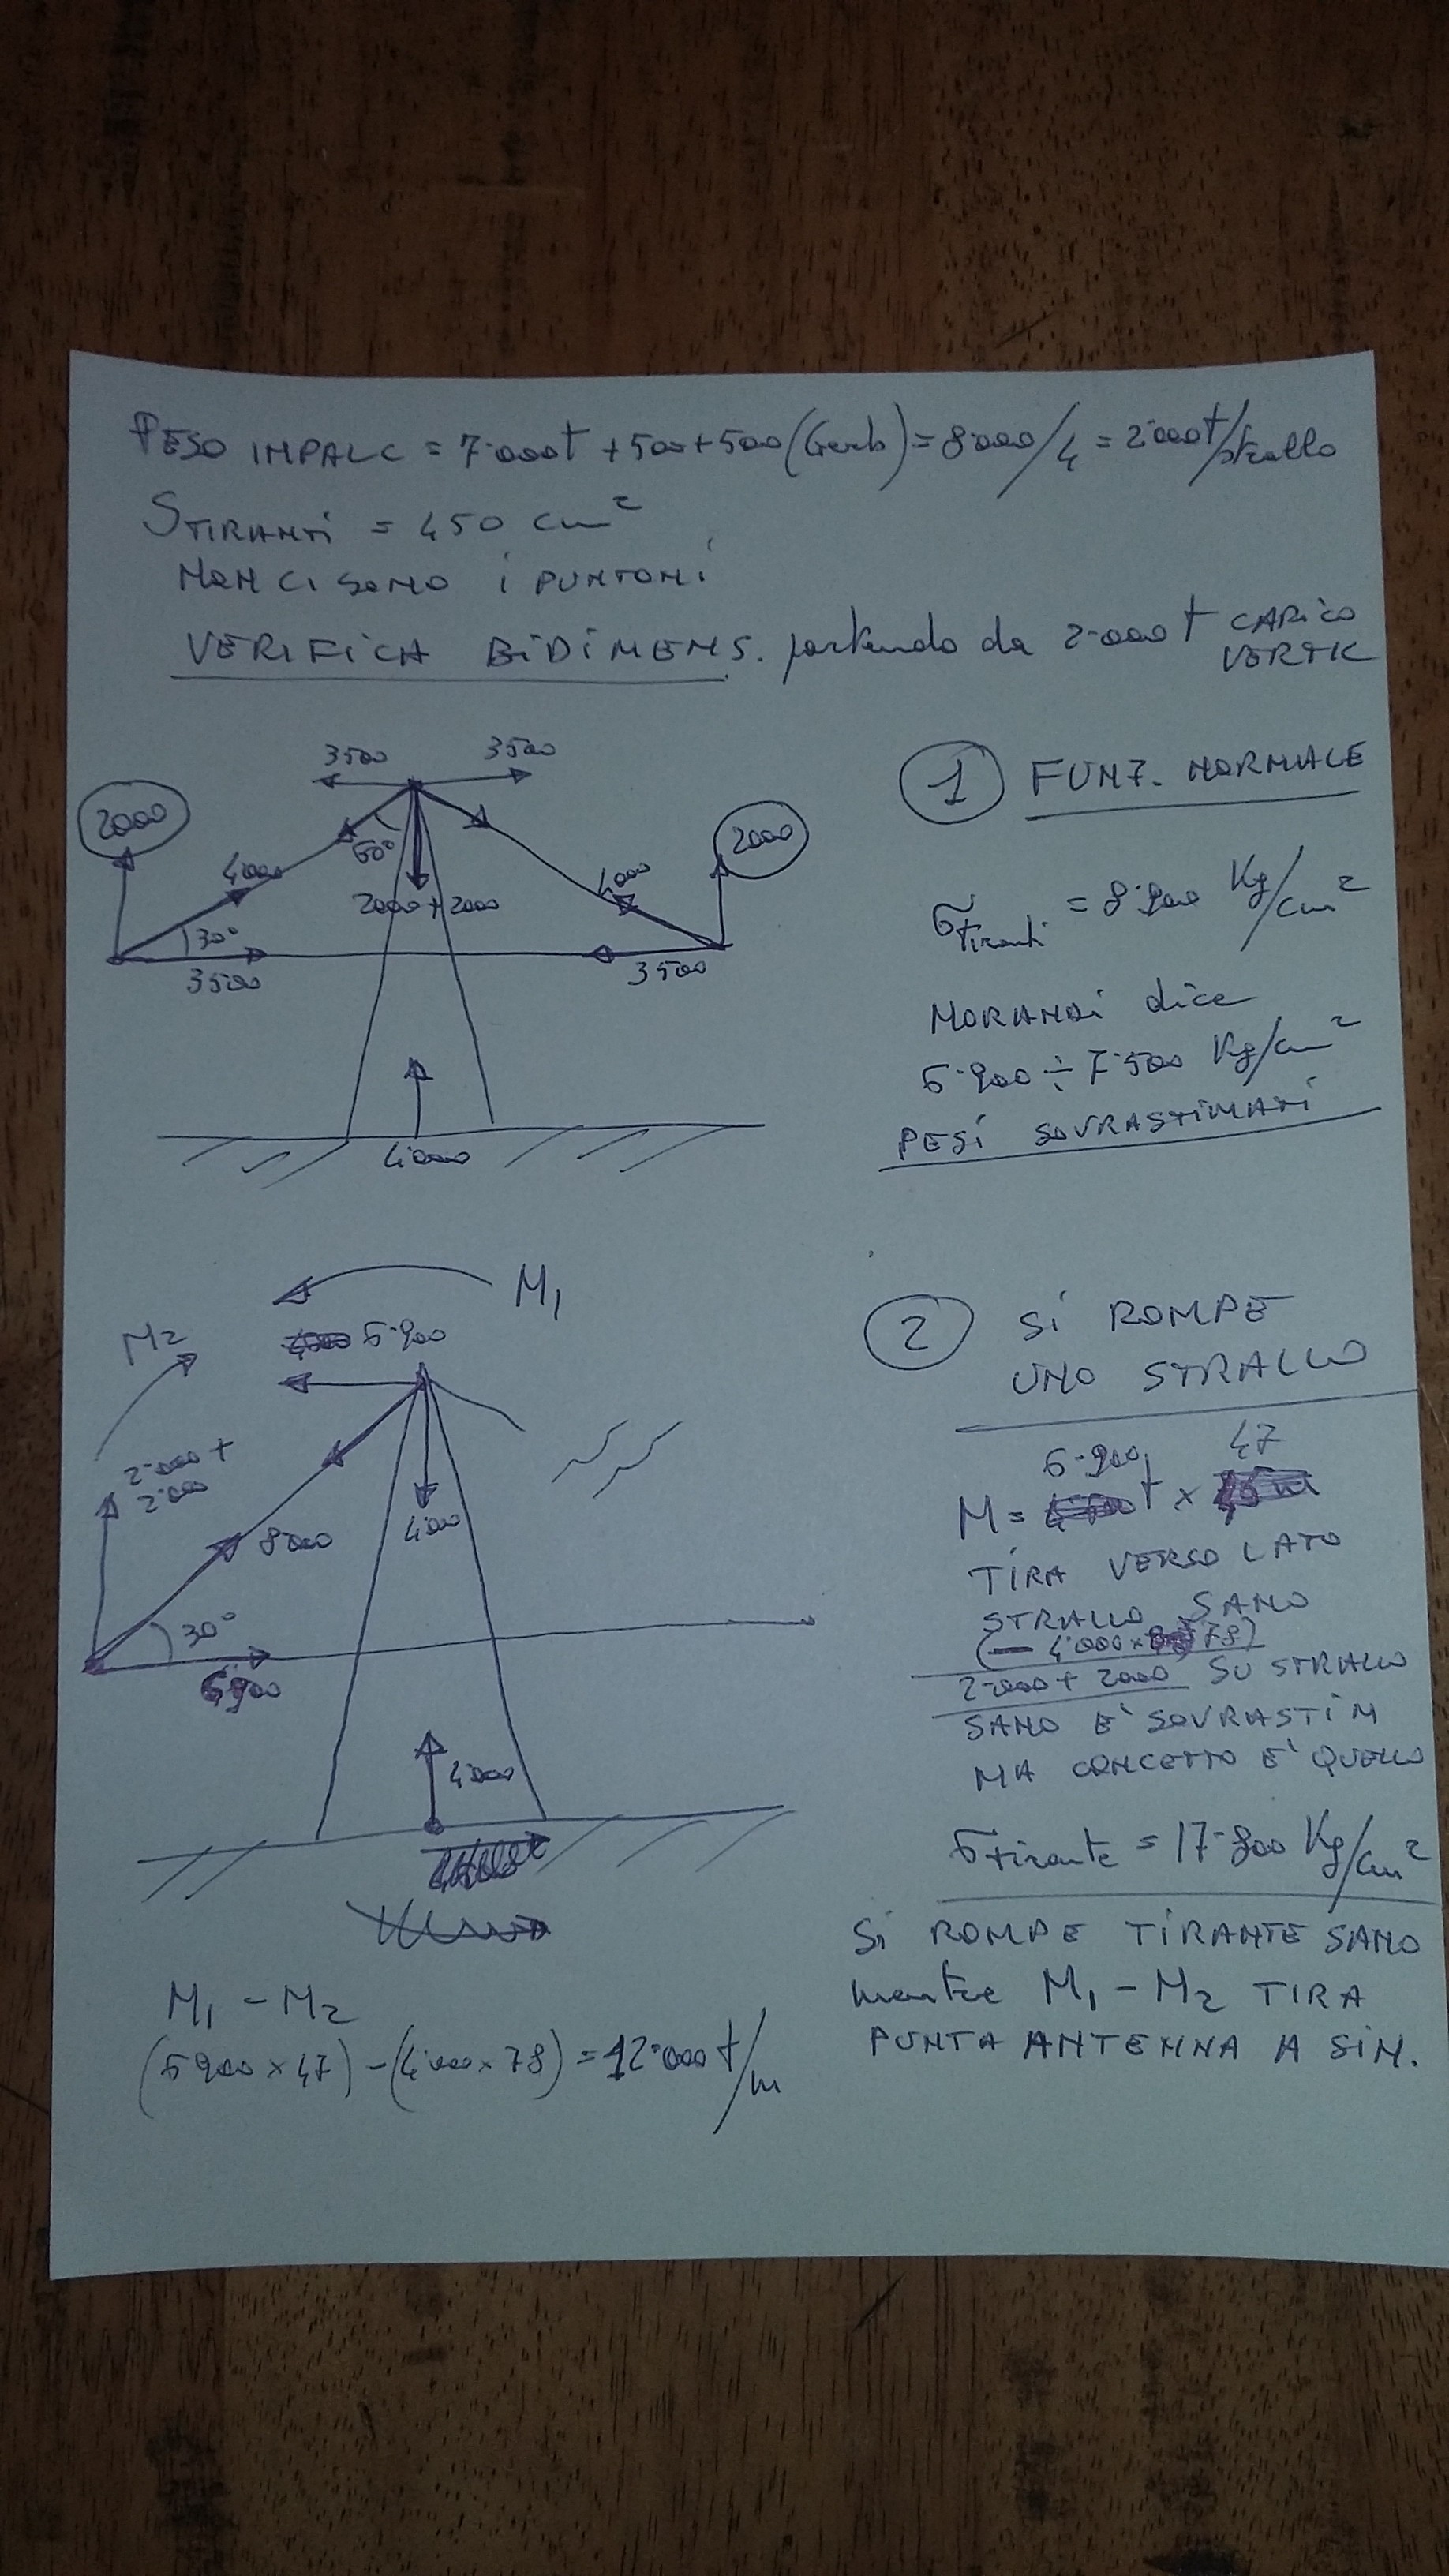 PESO IMPALC = 7·000t + 500 + 500 (Gerb) = 8·000/4 = 2·000t/strallo
STIRANTI = 450 cm²
NON CI SONO I PUNTONI
VERIFICA BIDIMENS. partendo da 2·000t CARICO VERTIC
3500 3500
2000
60°
4000
2000 + 2000
4000
2000
30°
3500
3500
4·000
1 FUNZ. NORMALE
σtiranti = 8·900 Kg/cm²
MORANDI dice
6·900 ÷ 7·500 Kg/cm²
PESI SOVRASTIMATI
M1
M2
6·900
2·000 +
2·000
8000
4000
30°
6900
4000
2 SI ROMPE
UNO STRALLO
6·900 47
M = t x
TIRA VERSO LATO
STRALLO SANO
(- 4·000 x 78)
2·000 + 2000 SU STRALLO
SANO E' SOVRASTIM
MA CONCETTO E' QUELLO
σtirante = 17·800 Kg/cm²
SI ROMPE TIRANTE SANO
mentre M1 - M2 TIRA
PUNTA ANTENNA A SIN.
M1 - M2
(6900 x 47) - (4·000 x 78) = 12·000 t/m